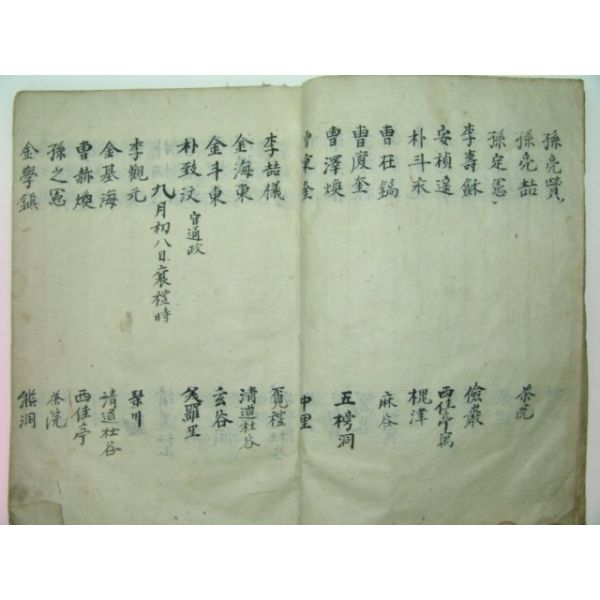 孫亮贊
孫亮喆 茶院
孫定憲
李壽龢 儉巖
安楨遠 西佳亭寓
朴斗永 槐津
曺在鎬
曺慶奎 麻谷
曺澤煥 五樗洞
曺秉奎 中里
李喆儀 賀禮
金海東 淸道杜谷
金斗東 玄谷
朴致汶 官通政 羅里
九月初八日襄禮時
李觀元 琴川
金基海 淸道杜谷
曺赫煥 西佳亭
孫之憲 茶院
金學鎭 熊洞